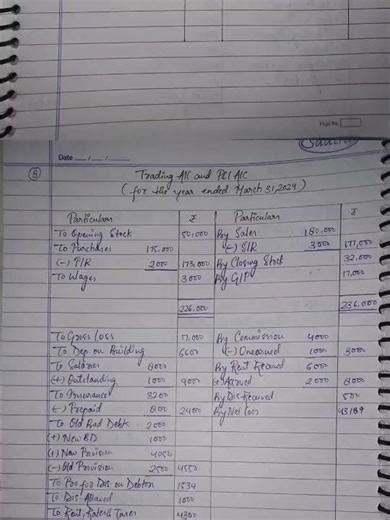 Page No.
Date
(8) Trading A/C and P&L A/C
(for the year ended March 31, 2024)
Particulars ₹ Particulars ₹
To Opening Stock 50,000 By Sales 180,000
To Purchases 175,000 (-) S/R 3000 177,000
(-) P/R 2000 173,000 By Closing Stock 32,000
To Wages 3000 By G/P 17,000
226,000 236,000
To Gross loss 17,000 By Commission 4000
To Dep on Building 6600 (-) Unearned 1000 3000
To Salaries 8000 By Rent Received 6000
(+) Outstanding 1000 9000 (+) Accrued 2000 8000
To Insurance 3200 By Dis Received 500
(-) Prepaid 800 2400 By Net loss
To Old Bad Debts 2000
(+) New BD 1000
(+) New Provision 4050
(-) Old Provision 2500 4550
To Pro for Dis on Debtors 1534
To Dis Allowed 1000
To Rent, Rates & Taxes 4300